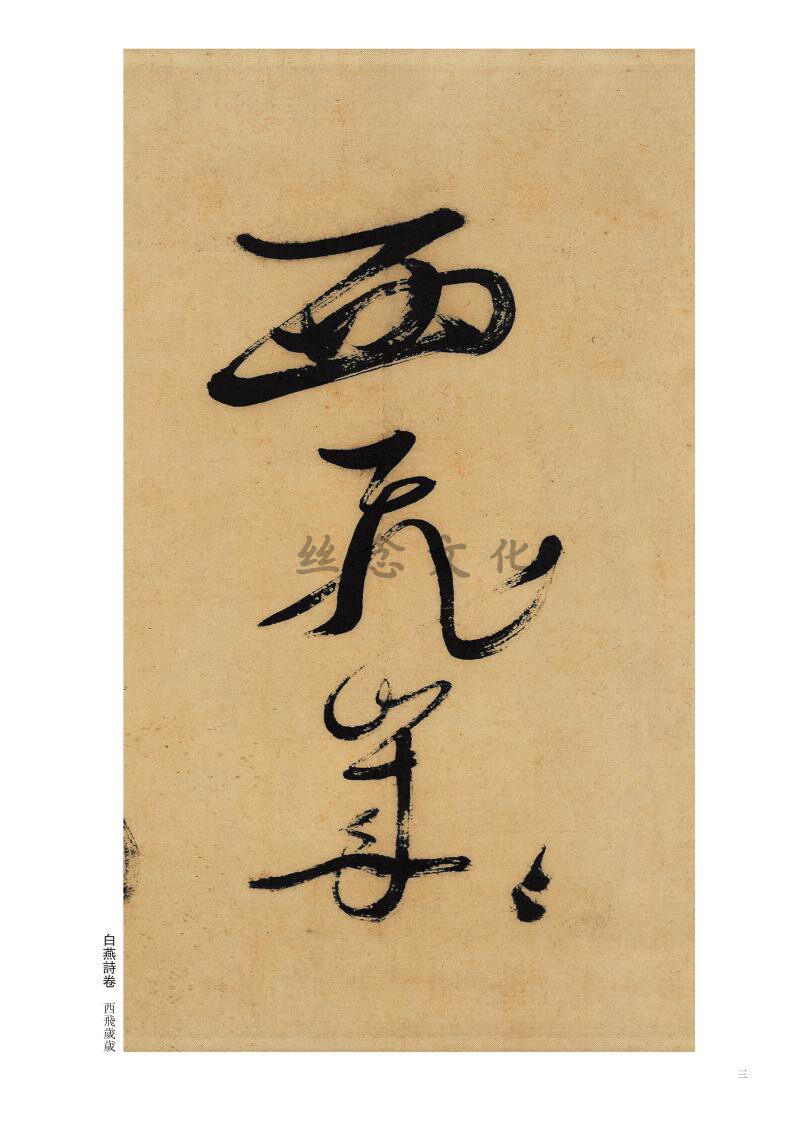 西飛歲〻
丝念文化
白燕詩卷 西飛歲歲
三